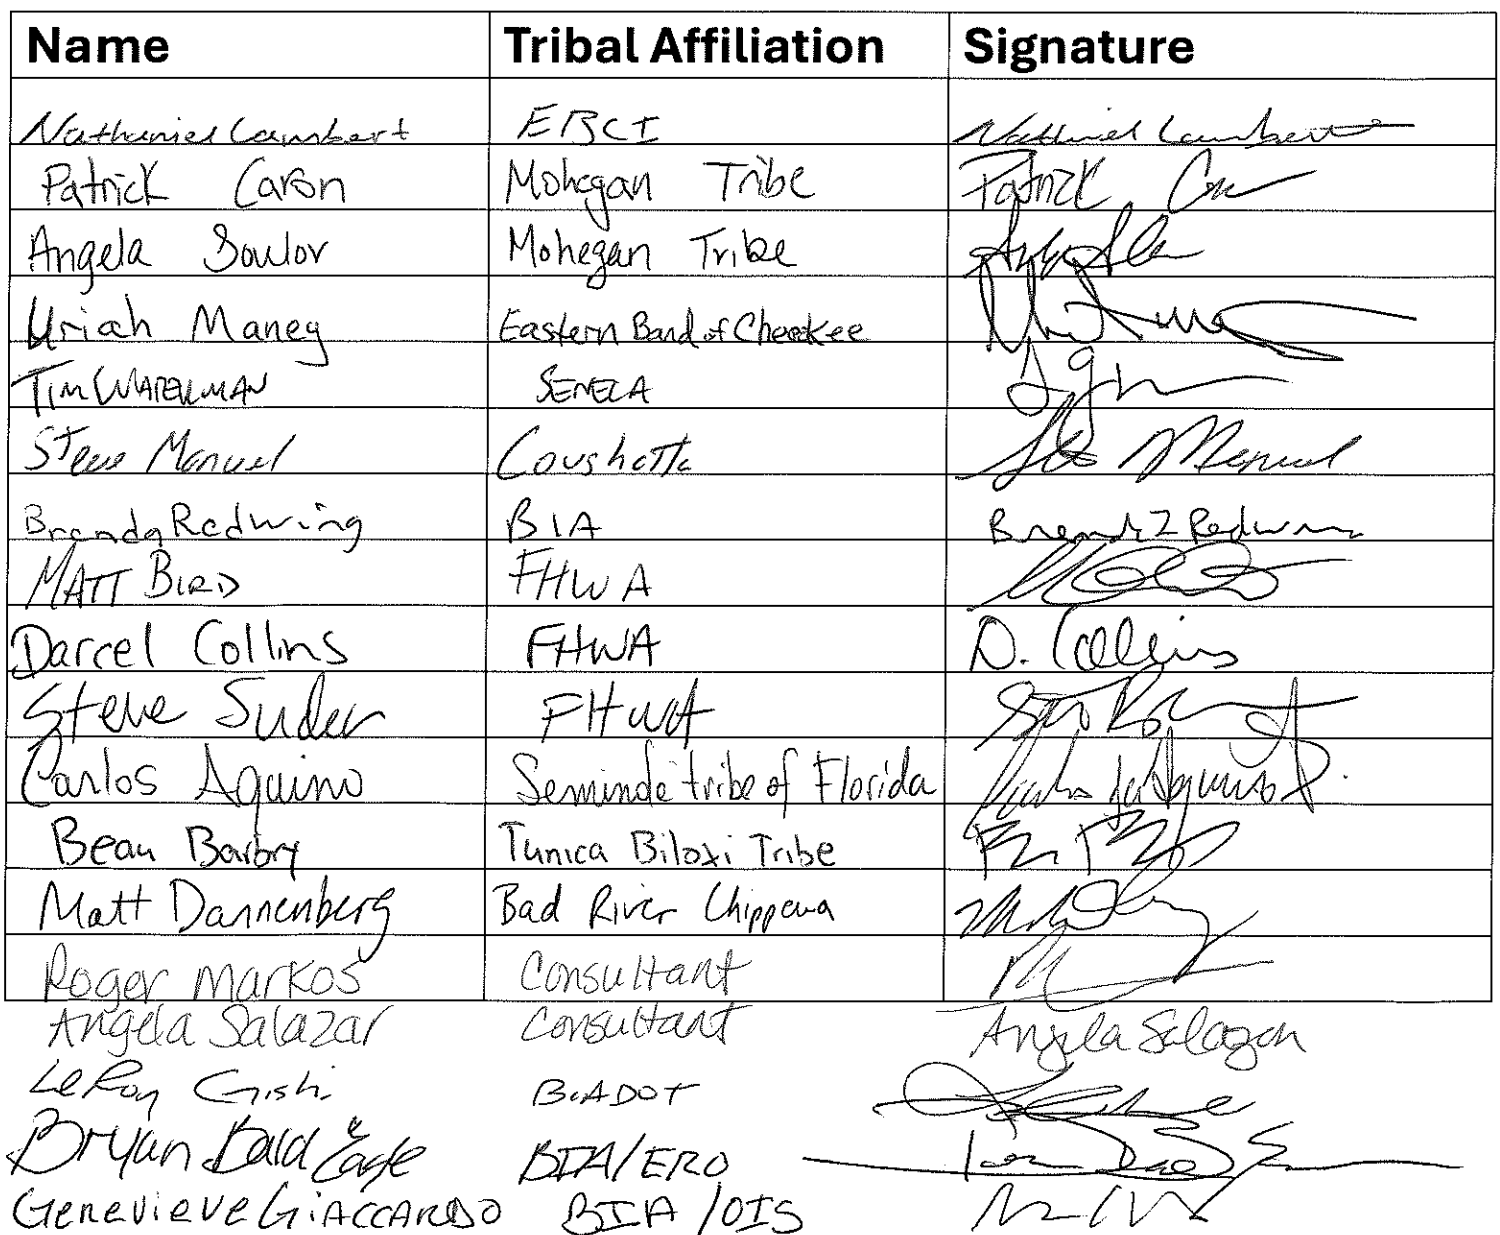 Name Tribal Affiliation Signature
Nathaniel Lambert EBCI Nathaniel Lambert
Patrick Caron Mohegan Tribe Patrick
Angela Mohegan Tribe
Uriah Maney Eastern Band of Cherokee
Tim Waterman SENECA
Steve Manuel Coushatta Manuel
Brenda Redwing BIA Brenda Redwing
MATT BIRD FHWA
Darcel Collins FHWA D. Collins
Steve Suder FHWA
Carlos Aquino Seminole tribe of Florida
Beau Barbry Tunica Biloxi Tribe
Matt Dannenberg Bad River Chippewa
Roger Markos Consultant
Angela Salazar Consultant Angela Salazar
LeRoy Gishi BIADOT
Bryan Bald Eagle BIA/ERO
Genevieve GiACCARDO BIA/OIS